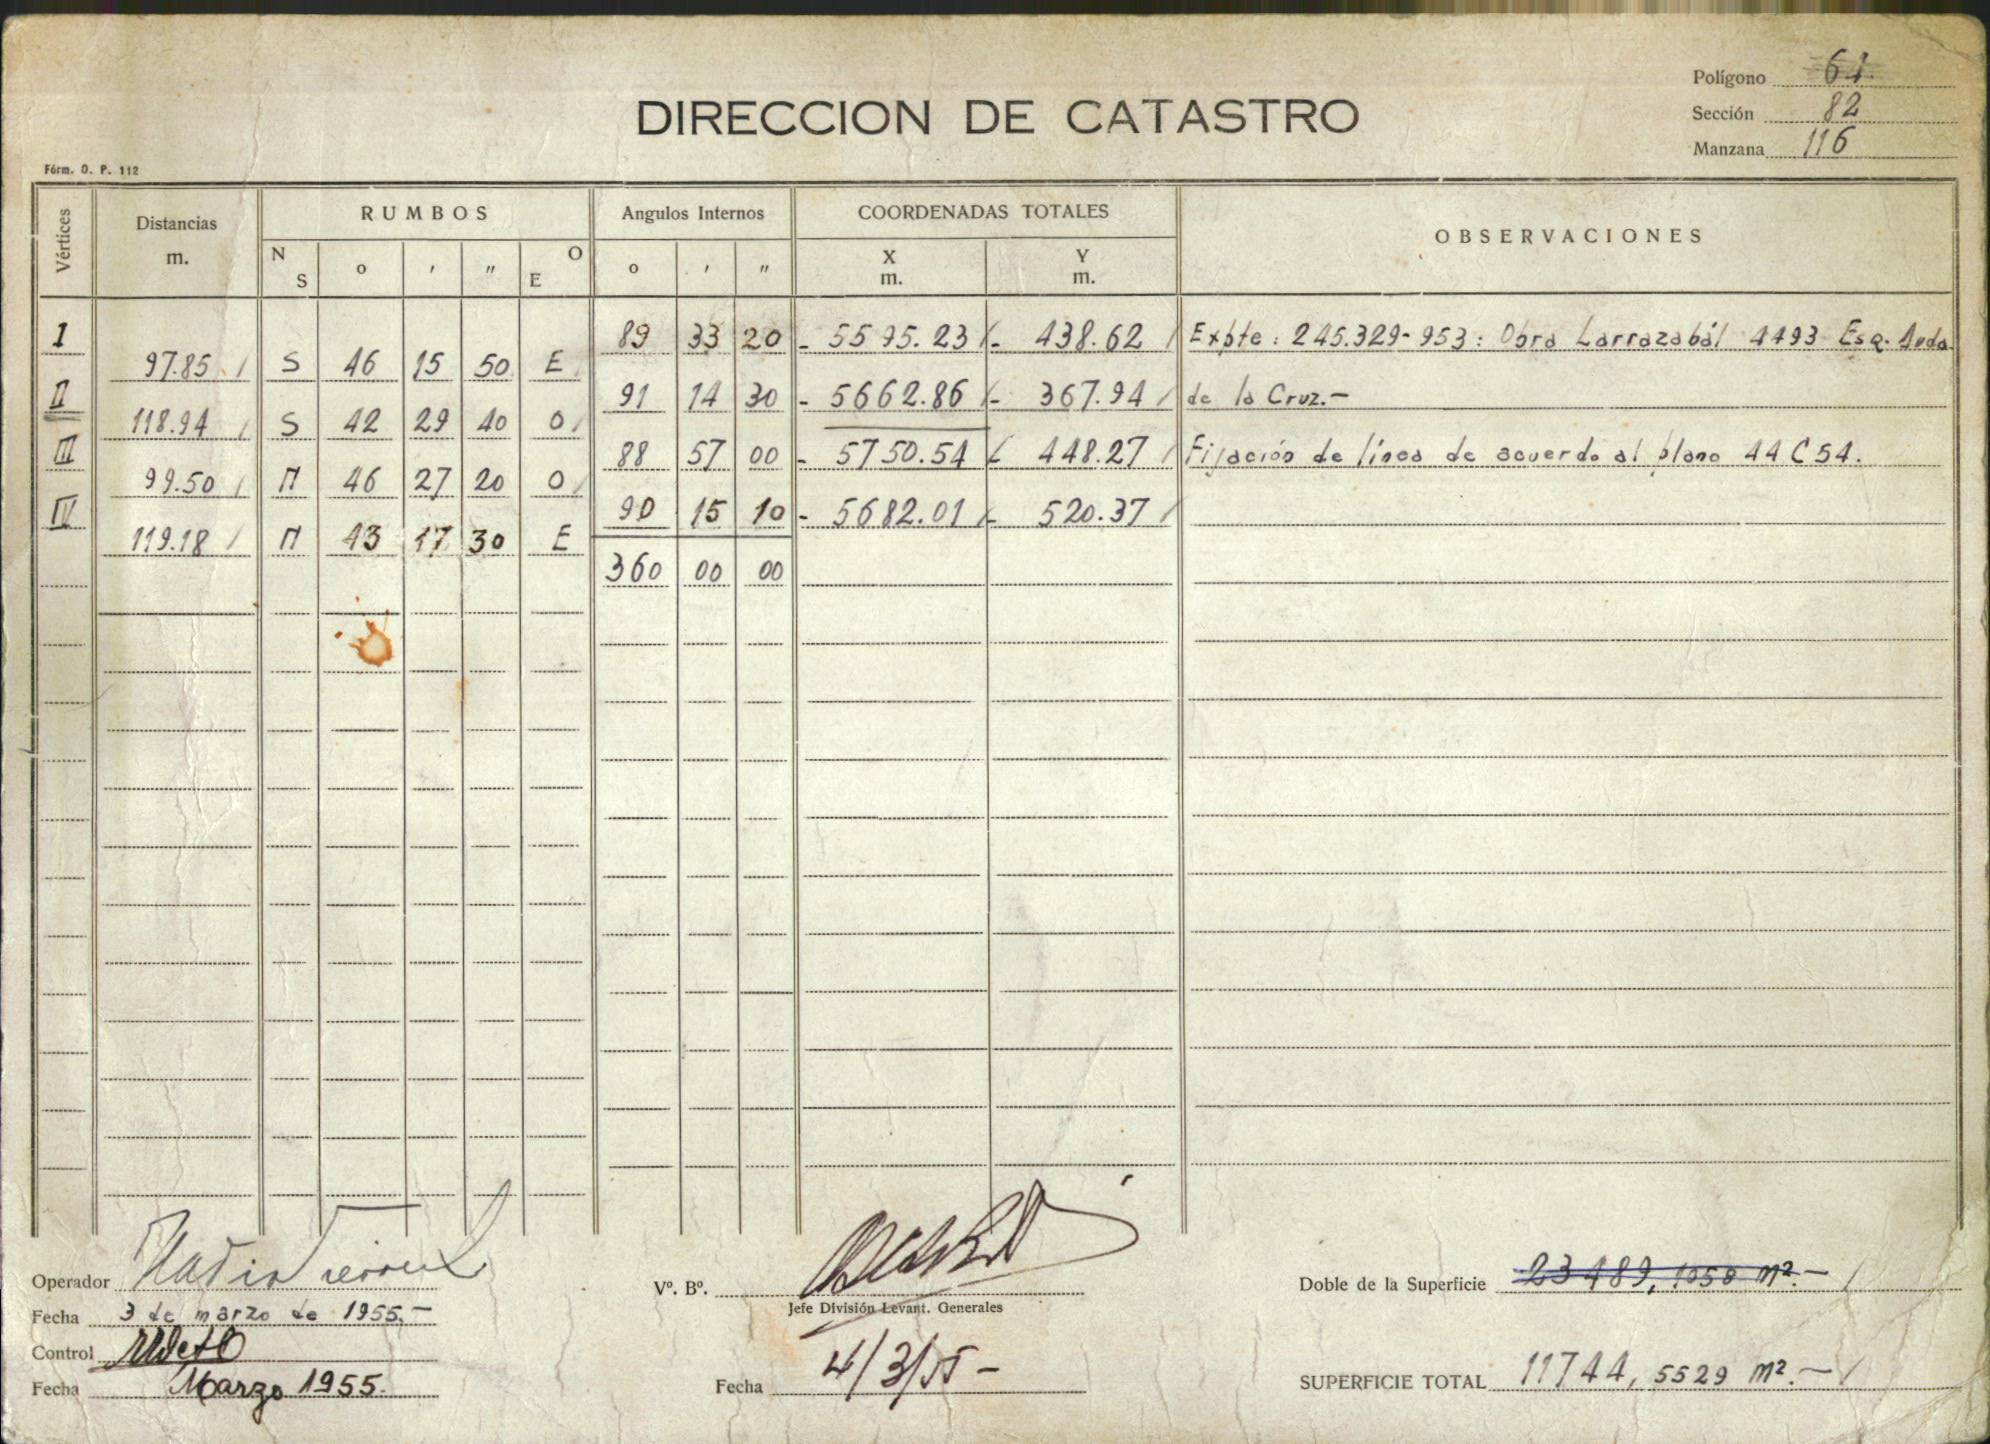 Polígono 61
DIRECCION DE CATASTRO
Sección 82
Manzana 116
Fórm. O. P. 112
Vértices Distancias m. RUMBOS N S o ' " O E Angulos Internos o ' " COORDENADAS TOTALES X m. Y m. OBSERVACIONES
I 89 33 20 - 5595.23 / - 438.62 / Expte: 245.329-953: Obra Larrazabál 4493 Esq. Avda.
97.85 / S 46 15 50 E
II 91 14 30 - 5662.86 / - 367.94 / de la Cruz.-
118.94 / S 42 29 40 O /
III 88 57 00 - 5750.54 / - 448.27 / Fijación de línea de acuerdo al plano 44 C 54.
99.50 / N 46 27 20 O /
IV 90 15 10 - 5682.01 / - 520.37 /
119.18 / N 43 17 30 E
360 00 00
Operador
Fecha 3 de marzo de 1955.-
Control
Fecha Marzo 1955.
Vº. Bº.
Jefe División Levant. Generales
Fecha 4/3/55 -
Doble de la Superficie 23489,1058 m².- /
SUPERFICIE TOTAL 11744,5529 m².- /